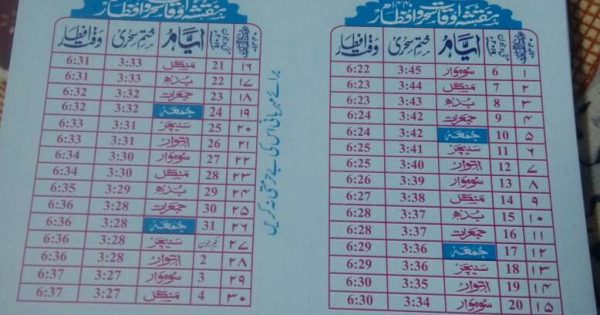 نقشہ اوقات سحر و افطار
ایام ختم سحری وقت افطار
۱ 6 سوموار 3:45 6:22
۲ 7 منگل 3:44 6:23
۳ 8 بدھ 3:43 6:23
۴ 9 جمعرات 3:42 6:24
۵ 10 جمعہ 3:42 6:24
۶ 11 سنیچر 3:41 6:25
۷ 12 اتوار 3:40 6:25
۸ 13 سوموار 3:39 6:26
۹ 14 منگل 3:38 6:27
۱۰ 15 بدھ 3:37 6:28
۱۱ 16 جمعرات 3:37 6:28
۱۲ 17 جمعہ 3:36 6:29
۱۳ 18 سنیچر 3:36 6:29
۱۴ 19 اتوار 3:35 6:30
۱۵ 20 سوموار 3:34 6:30
برائے مہربانی اس کی بے حرمتی نہ کریں
نقشہ اوقات سحر و افطار
ایام ختم سحری وقت افطار
۱۶ 21 منگل 3:33 6:31
۱۷ 22 بدھ 3:33 6:31
۱۸ 23 جمعرات 3:32 6:32
۱۹ 24 جمعہ 3:32 6:32
۲۰ 25 سنیچر 3:31 6:33
۲۱ 26 اتوار 3:31 6:33
۲۲ 27 سوموار 3:30 6:34
۲۳ 28 منگل 3:30 6:34
۲۴ 29 بدھ 3:29 6:35
۲۵ 30 جمعرات 3:28 6:36
۲۶ 31 جمعہ 3:28 6:36
۲۷ یکم جون سنیچر 3:28 6:36
۲۸ 2 اتوار 3:28 6:36
۲۹ 3 سوموار 3:27 6:37
۳۰ 4 منگل 3:27 6:37